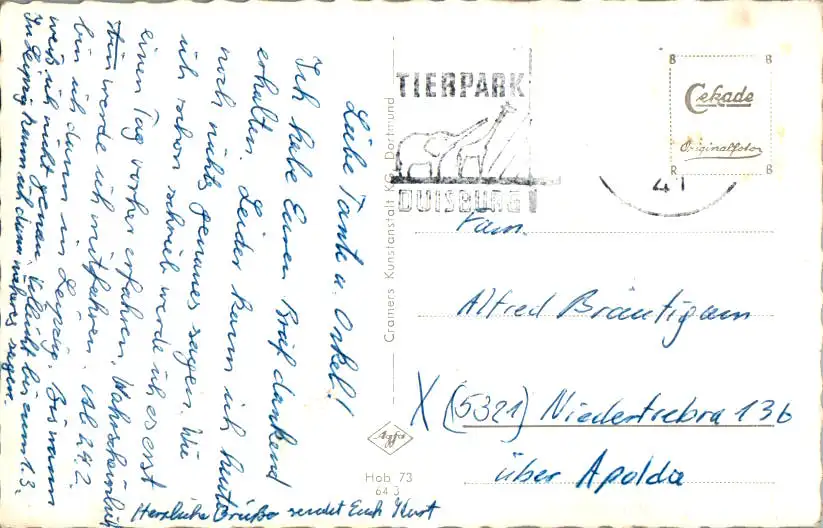 Liebe Tante u. Onkel!
Ich habe Euren Brief dankend
erhalten. Leider kann ich heute
noch nichts genaues sagen. Wie
ich schon schrieb werde ich es erst
einen Tag vorher erfahren. Wahrscheinlich
werde ich mitfahren. Ab 24.2.
bin ich dann in Leipzig. Bis wann
weiß ich nicht genau. Vielleicht bis zum 1.3.
In Leipzig kann ich dann näheres sagen.
Herzliche Grüße sendet Euch Kurt
Cramers Kunstanstalt KG. Dortmund
Agfa
Hob 73
64 3
TIERPARK
DUISBURG
41
B B
Cekade
Originalfoto
R B
Fam.
Alfred Bräutigam
X (5321) Niedertrebra 13b
über Apolda